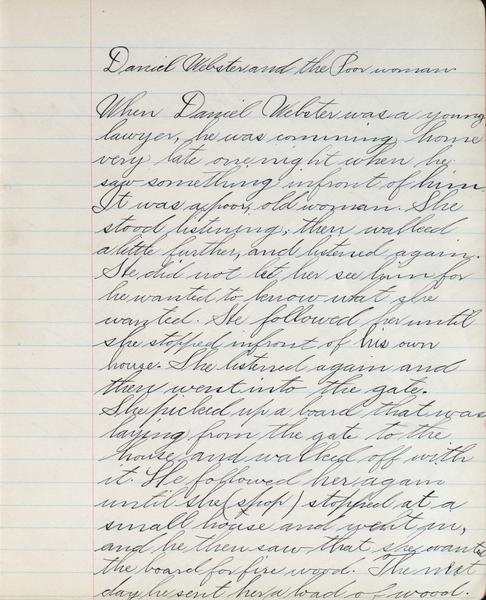 Daniel Webster and the Poor woman
When Daniel Webster was a young
lawyer, he was comming home
very late one night when he
saw something infront of him
It was a poor, old woman. She
stood listening; then walked
a little further, and listened again.
He did not let her see him for
he wanted to know what she
wanted. He followed her until
she stopped infront of his own
house. She listened again and
then went into the gate.
She picked up a board that was
laying from the gate to the
house and walked off with
it. He followed her again
until she (stop) stopped at a
small house and went in,
and he then saw that she wanted
the board for fire wood. The next
day he sent her a load of wood.